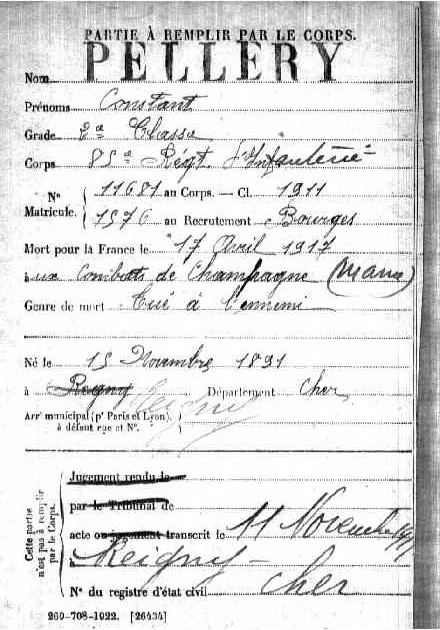 PARTIE À REMPLIR PAR LE CORPS.
Nom PELLERY
Prénoms Constant
Grade 2e Classe
Corps 85e Régt d'Infanterie
Nº Matricule. 11681 au Corps. — Cl. 1911
1576 au Recrutement Bourges
Mort pour la France le 17 Avril 1917
à ux Combats de Champagne (Marne)
Genre de mort Tué à l'ennemi
Né le 15 Novembre 1891
à Regny Reigny Département Cher
Arrt municipal (pr Paris et Lyon),
à défaut rue et Nº.
Cette partie
n'est pas à remplir
par le Corps.
Jugement rendu le
par le Tribunal de
acte ou jugement transcrit le 11 Novembre
à Reigny
Cher
Nº du registre d'état civil
260-708-1922. [26434]